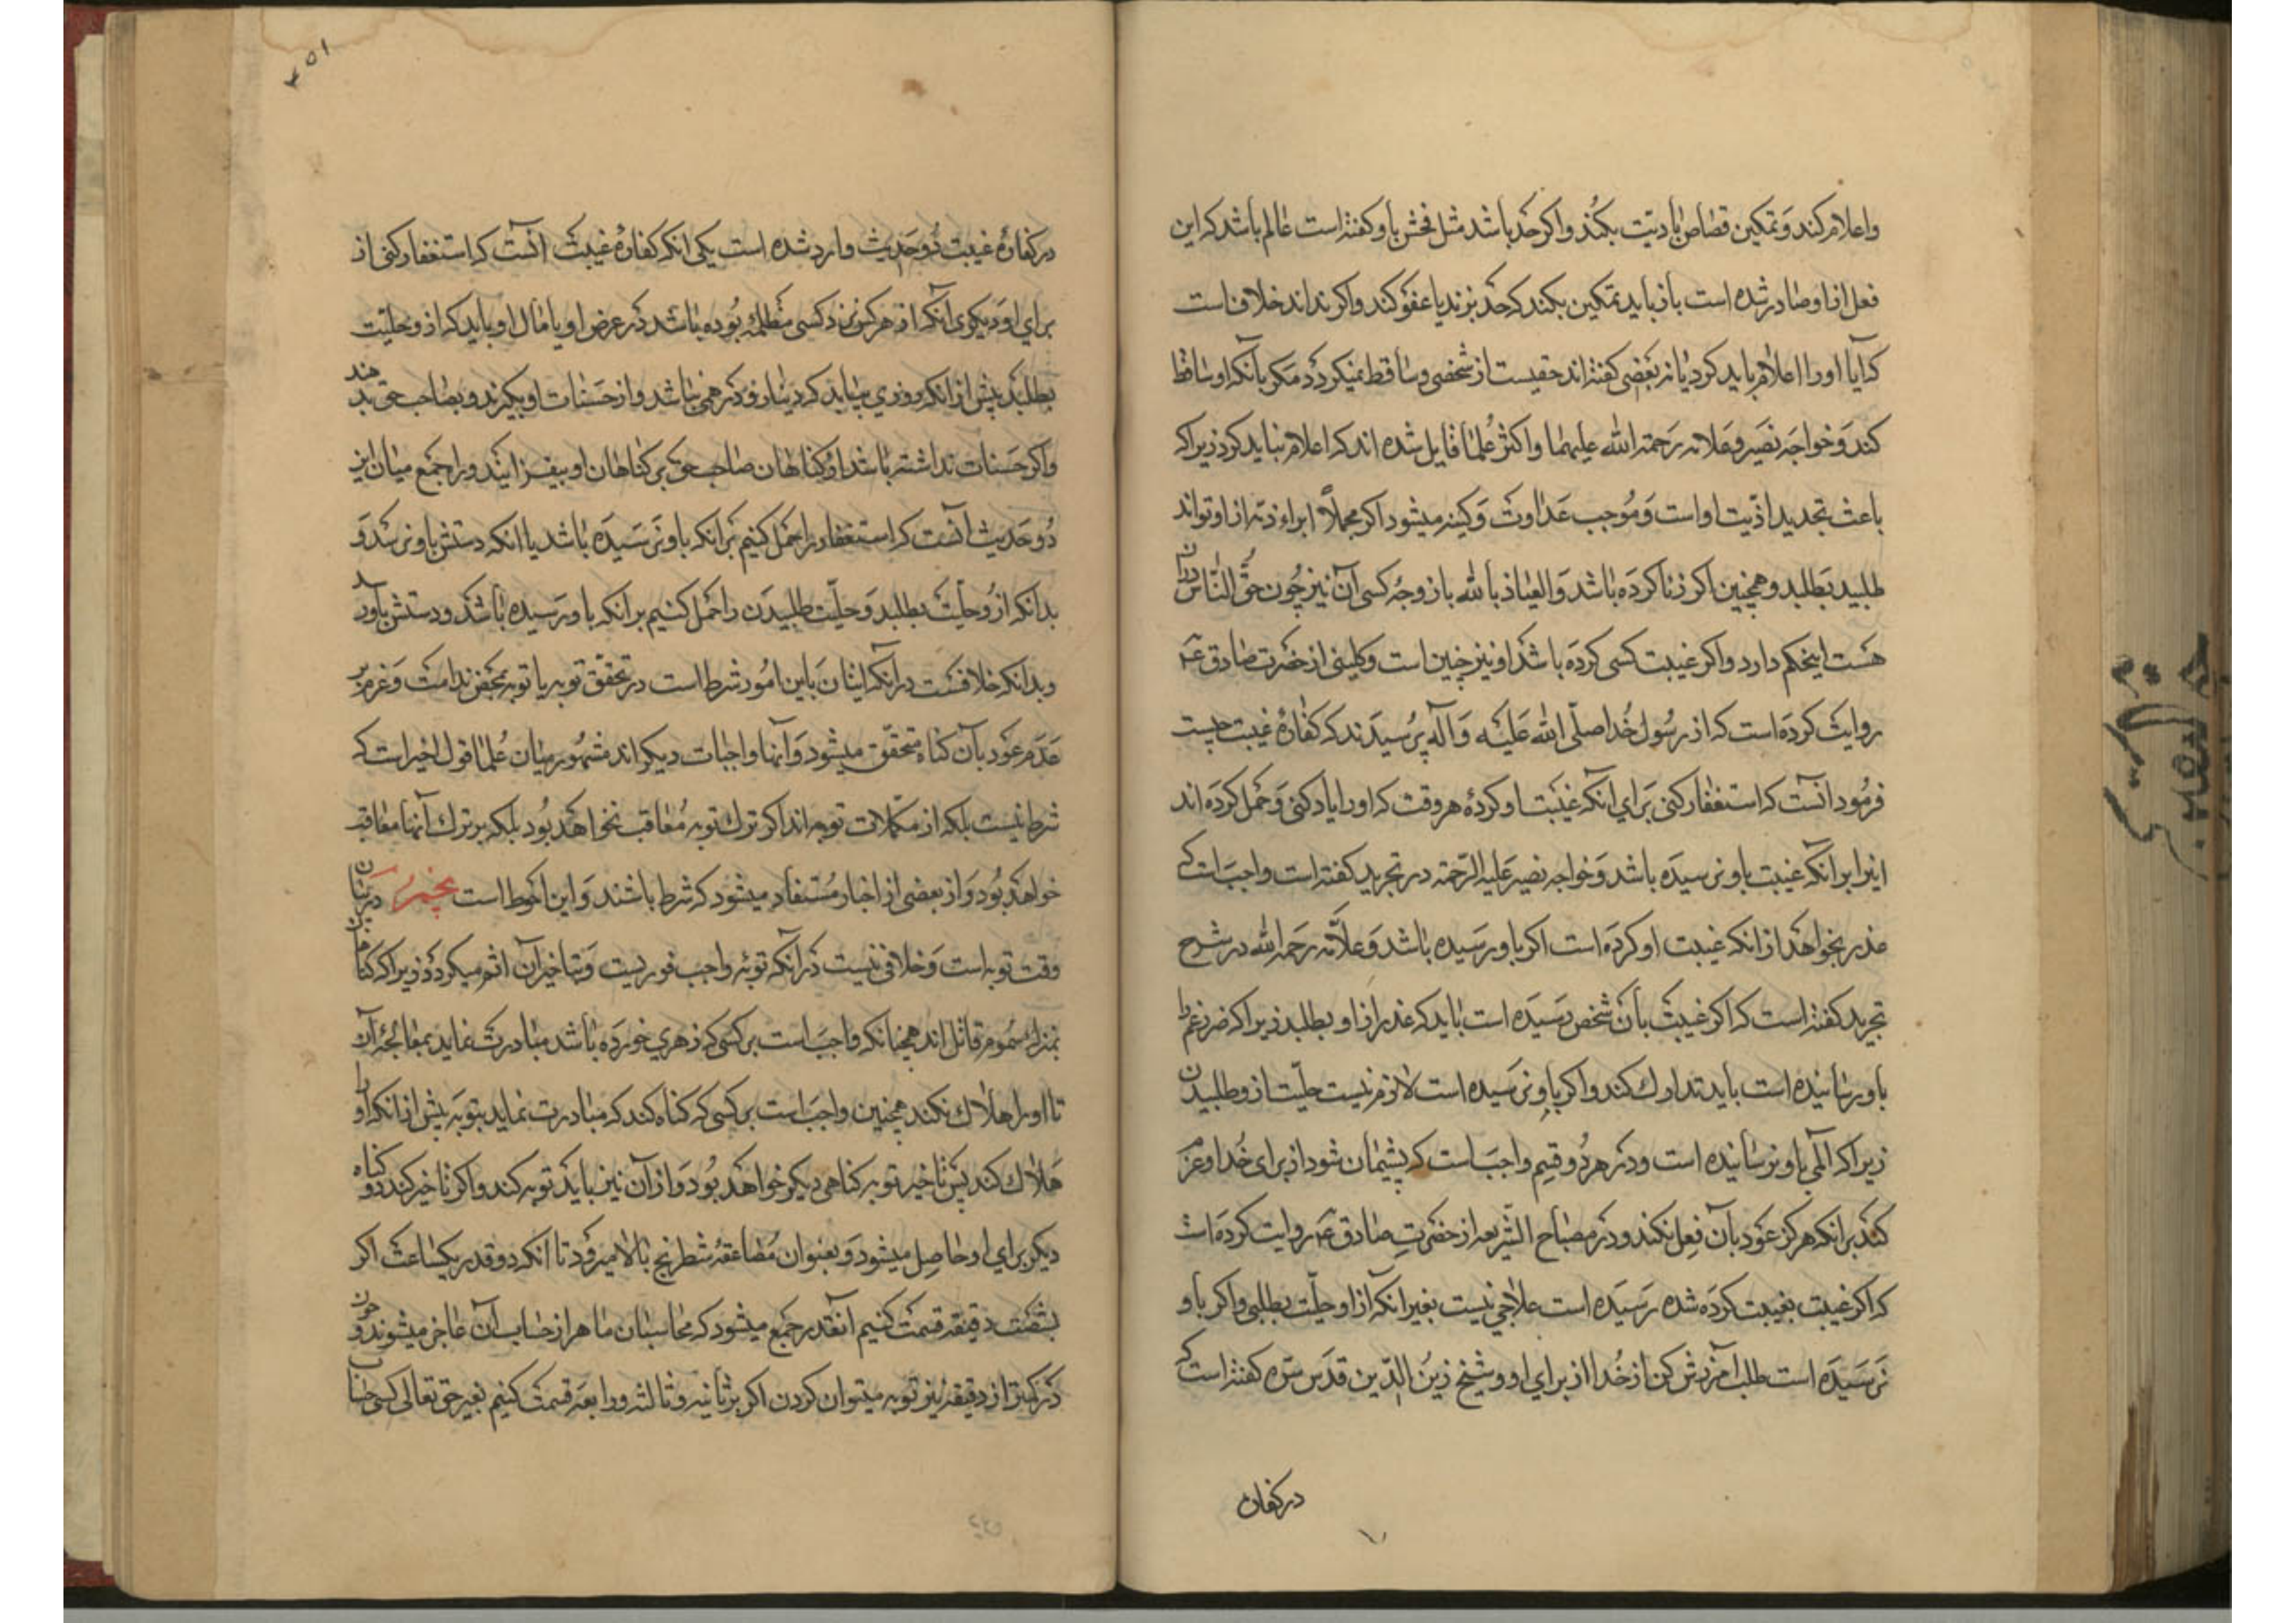 واعلام کند و تمکین قصاص یا دیت بکند واکر حد باشد مثل فحش باو کفته است عالم باشد که این
فعل از او صادر شده است باز باید تمکین بکند که حد بزند یا عفو کند واکر نداند خلاف است
که آیا او را اعلام باید کرد یا نه بعضی کفته اند حقیست از شخصی و ساقط نمیکردد مکر بآنکه او ساقط
کند و خواجه نصیر و علامه رحمة الله علیهما و اکثر علما قایل شده اند که اعلام نباید کرد زیرا که
باعث تجدید اذیت او است و موجب عداوت و کینه میشود اکر مجملاً ابراء ذمه از او تواند
طلبید بطلبد و همچنین اکر زنا کرده باشد والعیاذ بالله با زوجه کسی آن نیز چون حق الناس دران
هست اینحکم دارد واکر غیبت کسی کرده باشد او نیز چنین است و کلینی از حضرت صادق ع
روایت کرده است که از رسول خدا صلی الله علیه وآله پرسیدند که کفارهٔ غیبت چیست
فرمود آنست که استغفار کنی برای آنکه غیبت او کردهٔ هر وقت که او را یاد کنی و حمل کرده اند
اینرا بر آنکه غیبت باو نرسیده باشد و خواجه نصیر علیه الرحمة در تجرید کفته است واجبست که
عذر بخواهد از آنکه غیبت او کرده است اکر باو رسیده باشد و علامه رحمه الله در شرح
تجرید کفته است که اکر غیبت بآن شخص رسیده است باید که عذر از او بطلبد زیرا که ضرر غم را
باو رسانیده است باید تدارک کند واکر باو نرسیده است لازم نیست حلیت از و طلبیدن
زیرا که المی باو نرسانیده است ودر هر دو قسم واجبست که پشیمان شود از برای خدا و عزم
کند بر آنکه هرکز عود بآن فعل نکند و در مصباح الشریعه از حضرت صادق ع روایت کرده است
که اکر غیبت بغیبت کرده شده رسیده است علاجی نیست بغیر آنکه از او حلیت بطلبی واکر باو
نرسیده است طلب آمرزش کن از خدا از برای او و شیخ زین الدین قدس سره کفته است که
در کفارۀ
۱۵۲
در کفارهٔ غیبت دو حدیث وارد شده است یکی آنکه کفارهٔ غیبت آنست که استغفار کنی از
برای او و دیکری آنکه از هر کس نزد کسی مظلمه بوده باشد در عرض او یا مال او باید که از و حلیت
بطلبد پیش از آنکه روزی بیاید که دینار و درهمی نباشد و از حسنات او بکیرند و بصاحب حق بدهند
واکر حسنات نداشته باشد او کناهان صاحب حق بر کناهان او بیفزایند و راه جمع میان این
دو حدیث آنست که استغفار را حمل کنیم بر آنکه باو نرسیده باشد یا آنکه دستش باو نرسد و
بدانکه از و حلیت بطلبد و حلیت طلبیدن را حمل کنیم بر آنکه باو رسیده باشد و دستش باو رسد
و بدانکه خلافست در آنکه اتیان باین امور شرط است در تحقق توبه یا توبه بمحض ندامت و عزم بر
عدم عود بآن کناه متحقق میشود و آنها واجبات دیکراند مشهور میان علما قول اخیر است که
شرط نیست بلکه از مکملات توبه اند اکر ترک توبه معاقب نخواهد بود بلکه بر ترک آنها معاقب
خواهد بود و از بعضی از اخبار مستفاد میشود که شرط باشند و این احوط است پنجم در بیان
وقت توبه است و خلافی نیست در آنکه توبه واجب فوریست و بتاخیر آن اثم میکردد زیرا که کناهان
بمنزله سموم قاتل اند همچنانکه واجبست بر کسی که زهری خورده باشد مبادرت نماید بمعالجهٔ آن
تا او را هلاک نکند همچنین واجبست بر کسی که کناه کند که مبادرت نماید بتوبه پیش از آنکه او را
هلاک کند پس تاخیر توبه کناهی دیکر خواهد بود و از آن نیز باید توبه کند واکر تاخیر کند دو کناه
دیکر برای او حاصل میشود و بعنوان مضاعفهٔ شطرنج بالا میرود تا آنکه دو قدر یکساعت اکر
بشصت دقیقه قسمت کنیم آنقدر جمع میشود که محاسبان ماهر از حساب آن عاجز میشوند و چون
در کمتر از دقیقه نیز توبه میتوان کردن اکر بثانیه و ثالثه و رابعه قسمت کنیم بغیر حق تعالی کسی حساب